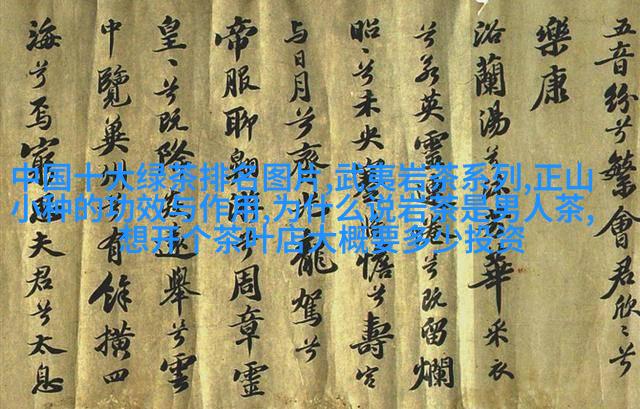 五音紛兮繁會君欣〻兮
樂康
浴蘭湯兮沐芳華采衣
兮若英靈連蜷兮既留爛
昭〻兮未央謇將憺兮壽宮
与日月兮齊光龍駕兮
帝服聊翱遊兮周章靈
皇〻兮既降猋遠舉兮雲
中覽冀州兮有餘橫四
海兮焉窮思夫君兮太息
中国十大绿茶排名图片,武夷岩茶系列,正山
小种的功效与作用,为什么说岩茶是男人茶,
想开个茶叶店大概要多少投资